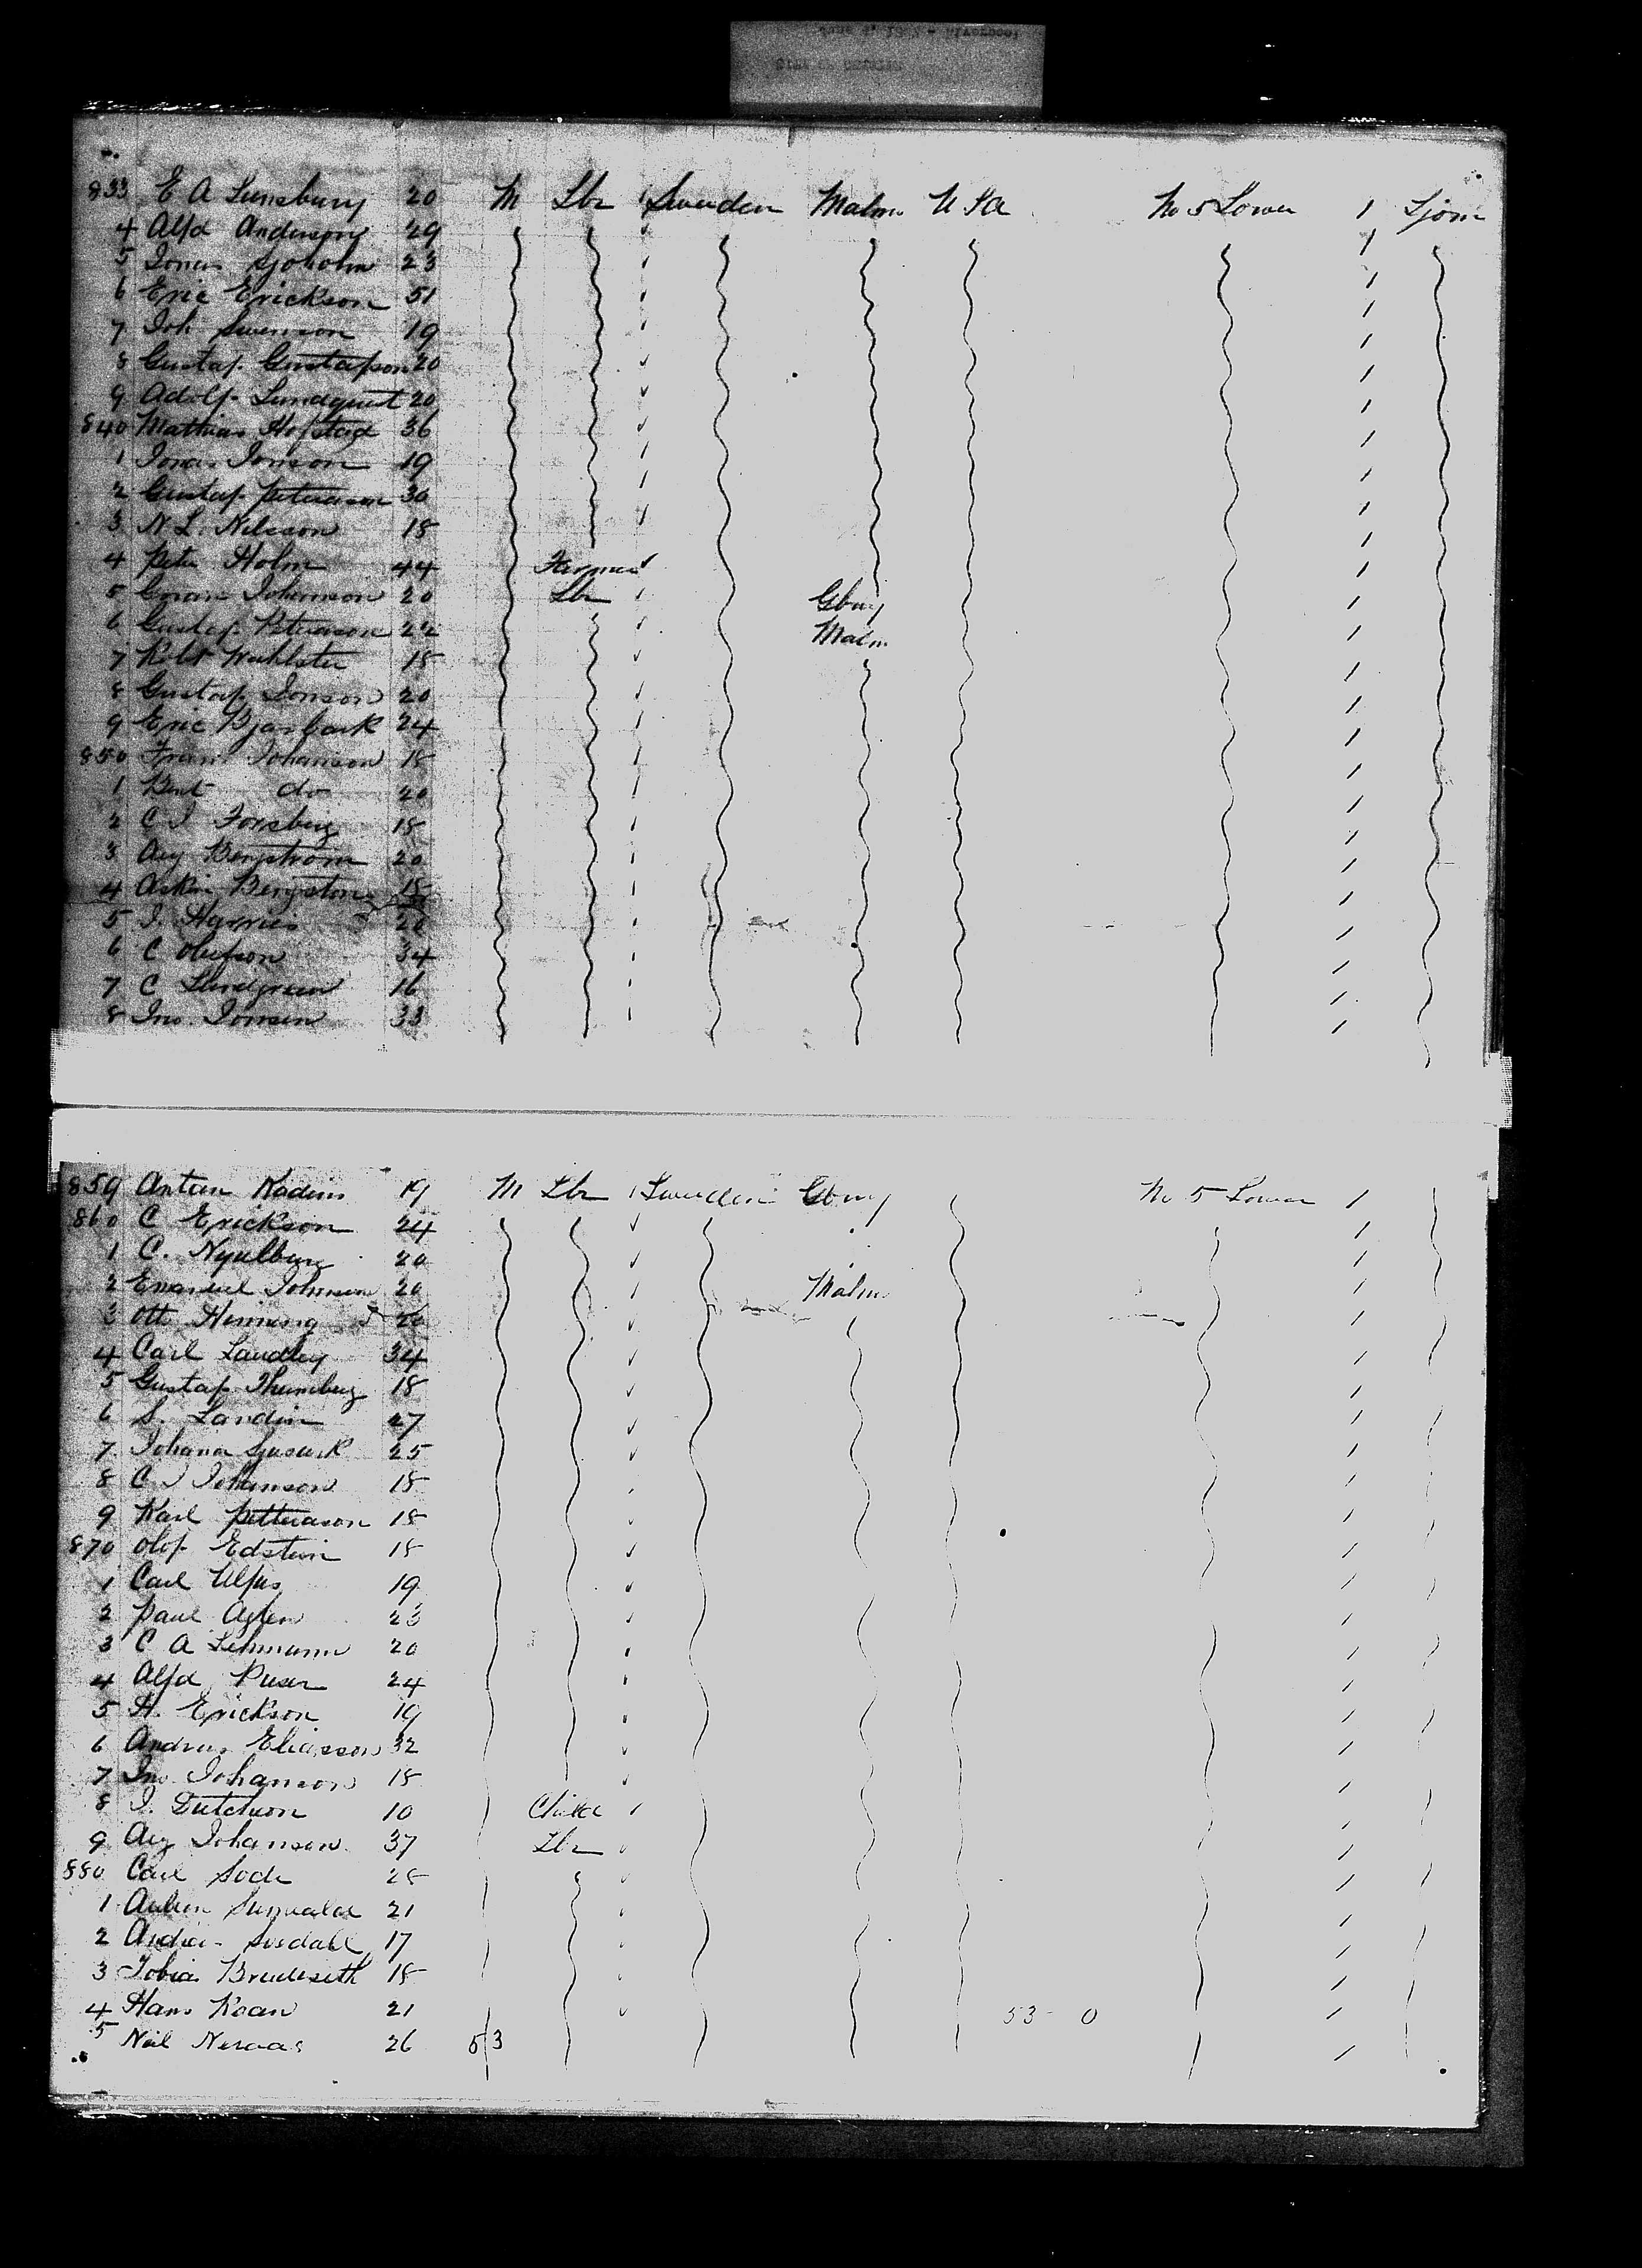 833 E A Lunsbury 20 M Lbr Sweden Malmo U S A No 5 Lower 1
4 Alfd Anderson 29
5 Jonas Sjoholm 23
6 Eric Erickson 51
7 Joh Swenson 19
8 Gustaf Gustafson 20
9 Adolf Lundquist 20
840 Mathias Hofstad 36
1 Jonas Jonson 19
2 Gustaf Peterson 30
3 N L. Nilsson 18
4 Peter Holm 44 Farmer
5 Goran Johanson 20 Lbr Gburg
6 Gustaf Peterson 22 Malm
7 Robt 18
8 Gustaf Jonson 20
9 Eric 24
850 Frans Johanson 18
1 Bent do 20
2 C J Forsberg 18
3 Aug Bergstrom 20
4 Bengston 18
5 J. Harries 20
6 C Olufson 34
7 C Lundgreen 16
8 Jno. Jonsen 33
859 Antun Kadins 19 M Lbr Sweden Gburg No 5 Lower 1
860 C Erickson 24
1 C. 20
2 Emanuel Johnson 20 Malm
3 Ott Hinning 20
4 Carl Laudley 34
5 Gustaf Thunberg 18
6 S. Landin 27
7 Johana 25
8 C J Johanson 18
9 Karl Petterason 18
870 Olof Edstein 18
1 Carl Ulfus 19
2 Paul Aglen 23
3 C A Lehmann 20
4 Alfd 24
5 H. Erickson 19
6 Andreas Eliasson 32
7 Jno. Johanson 18
8 J. Dutchson 10 Child
9 Aug Johanson 37 Lbr
880 Carl Sode 28
1 21
2 17
3 Tobias 18
4 Hans Koan 21 53 - 0
5 Neil Neraas 26 53